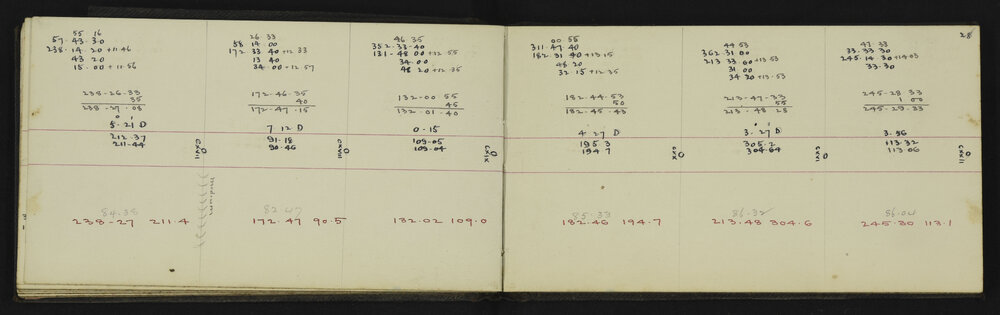 55 16
57. 43. 30
238. 14. 20 +11.46
43 20
15. 00 +11.56
238-26-33
35
238-27.08
5.21 D
212.37
211.44
CXVII
84.38
238-27 211.4
26.33
58 14 00
172 33 40 +12 33
13 40
34 00 +12.57
172.46.35
40
172.47.15
7 12 D
91.18
90.46
CXVIII
82.47
172.47 90.5
46 35
352-33-40
131-48 00 +12 55
34.00
48 20 +12.35
132-00 55
45
132-01-40
0.15
109.05
109.04
CXIX
132.02 109.0
00 55
311.47 40
182.31 40 +13.15
48 20
32.15 +12.35
182.44.53
50
182.45.43
4 27 D
195 3
194 7
CXX
85.33
182.46 194.7
28
44 53
362 31 00
213 33 60 +13 53
31 00
34 30 +13.53
213-47-33
55
213.48 28
3. 27 D
305.2
304.64
CXXI
86.32
213.48 304.6
43.33
33.33 30
245.14 30 +14.03
33.30
245-28 33
1 00
245-29.33
3.56
113.32
113 06
CXXII
86.04
245.30 113.1